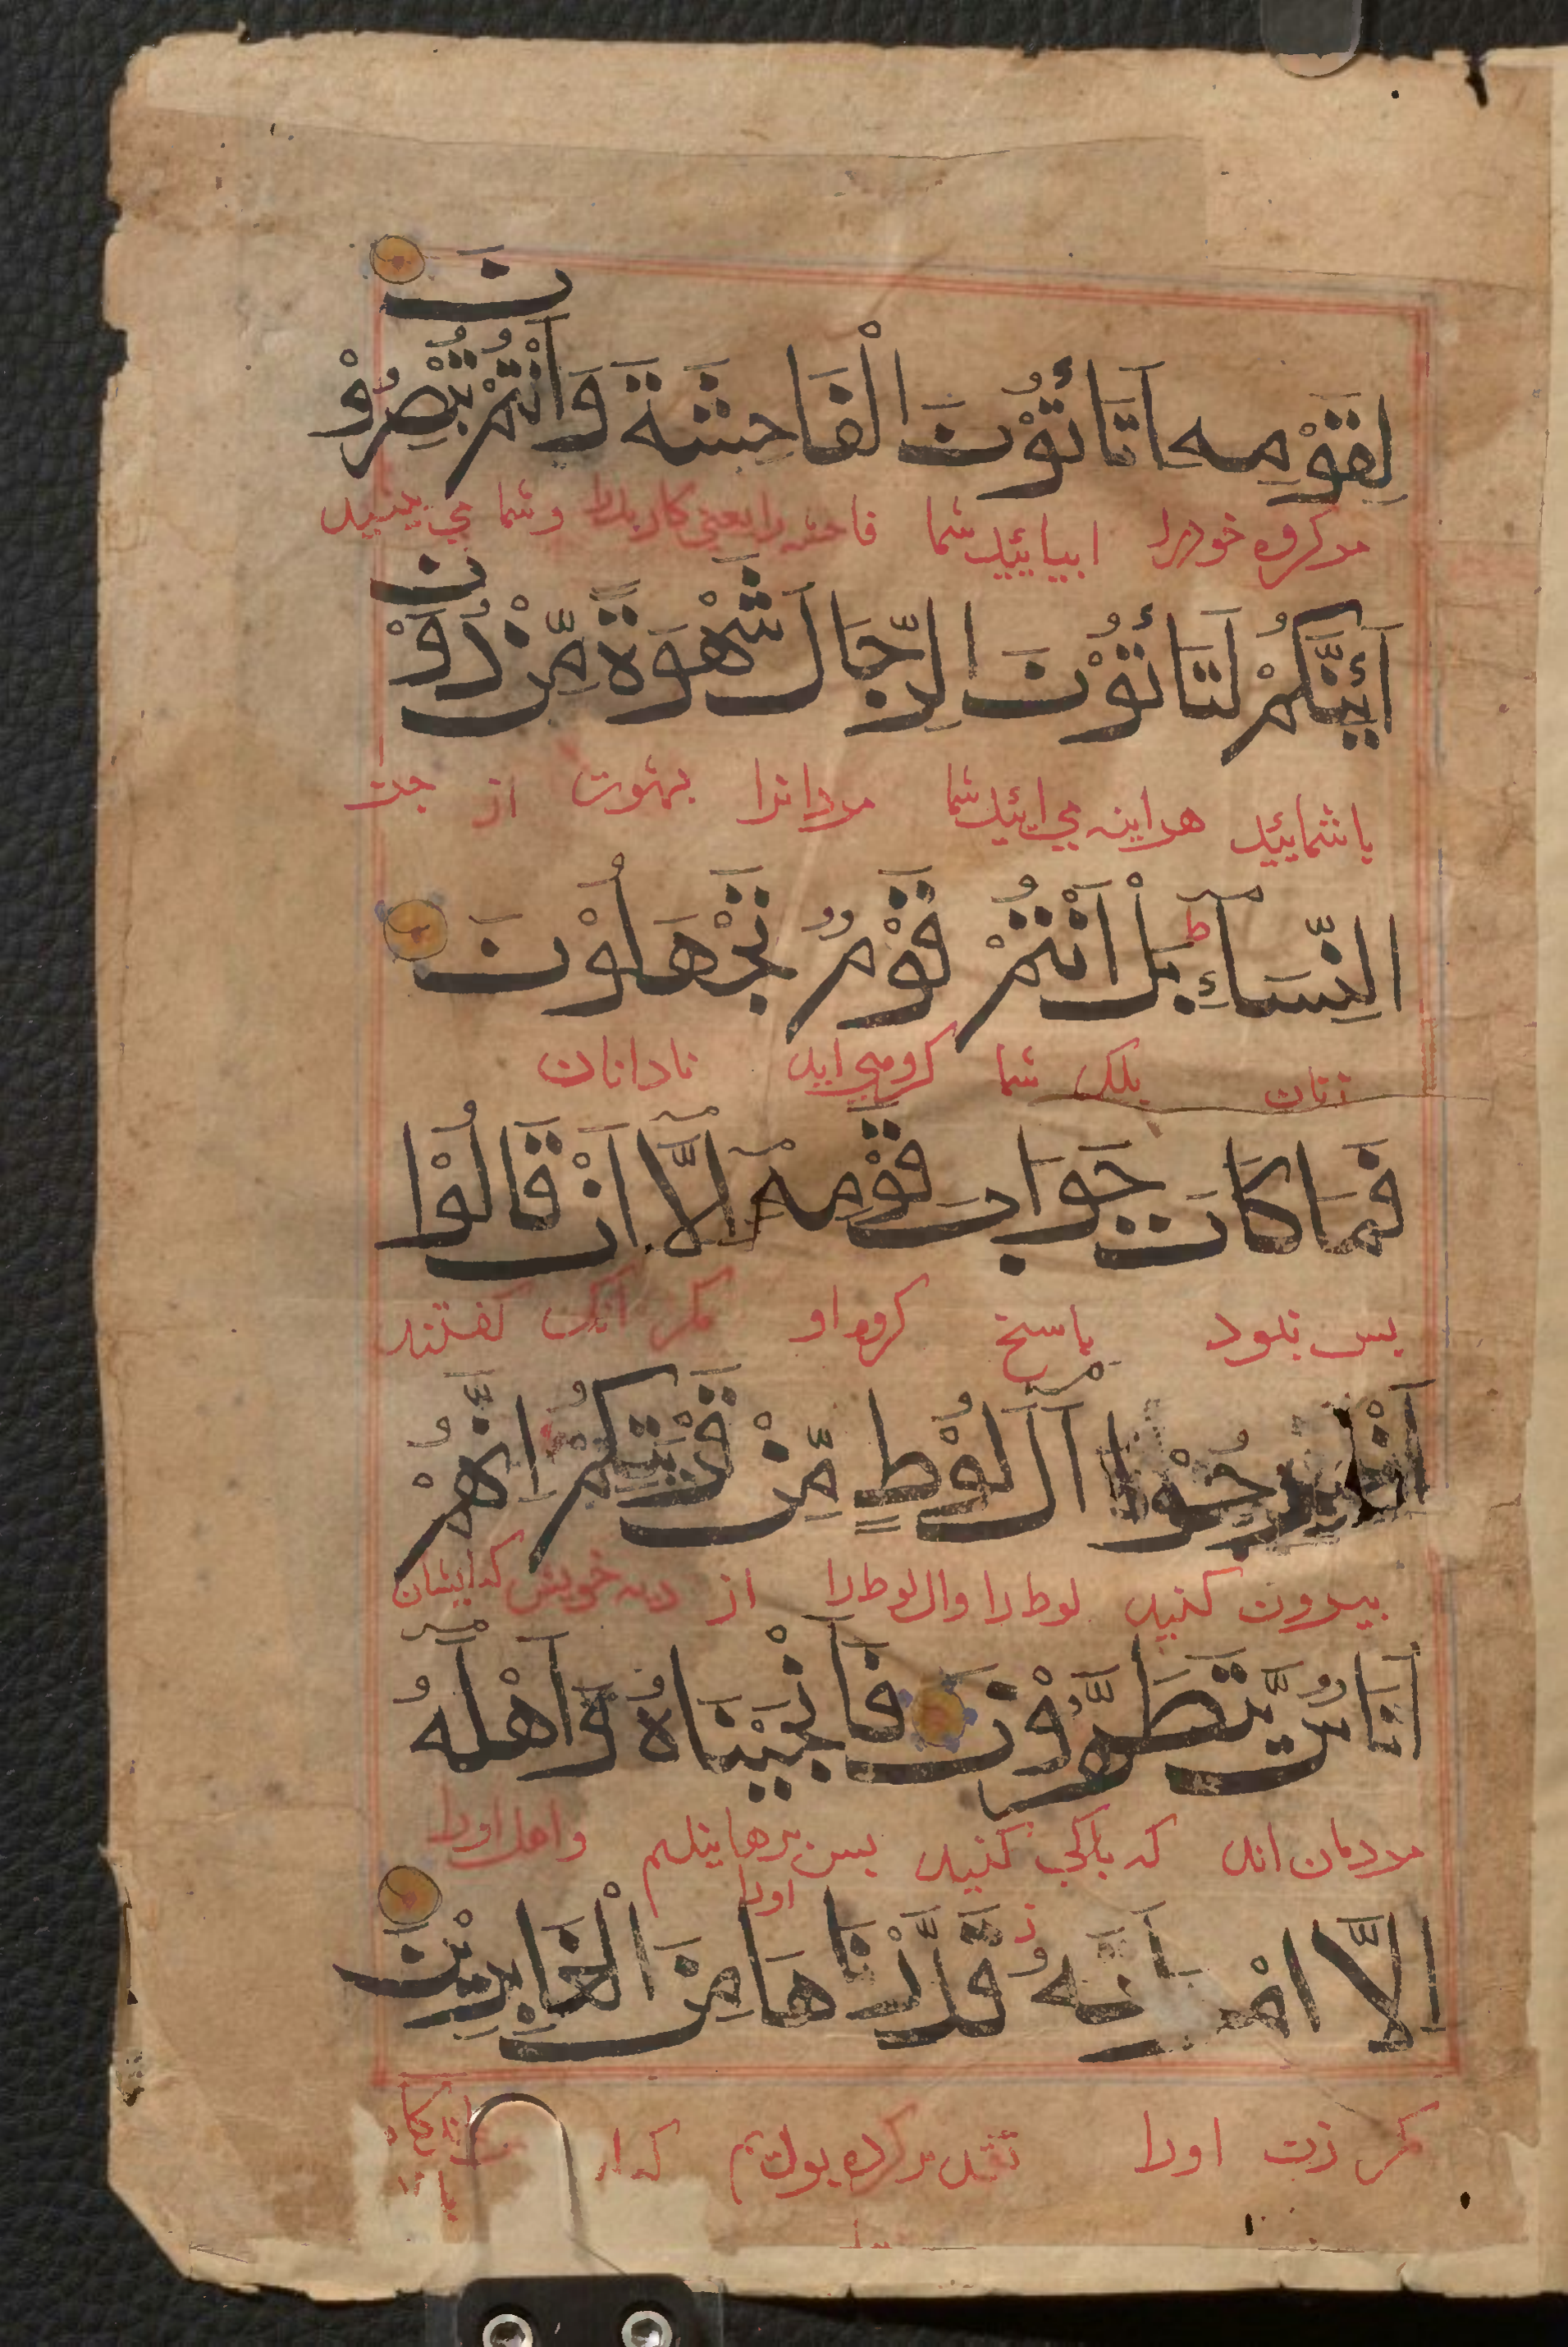 لِقَوْمِهٖ اَتَاْتُوْنَ الْفَاحِشَةَ وَاَنْتُمْ تُبْصِرُوْنَ
مر کروه خود را اییائید شما فاحشه را یعنی کار بد را وشما می بینید
اَئِنَّكُمْ لَتَاْتُوْنَ الرِّجَالَ شَهْوَةً مِّنْ دُوْنِ
یا شمایید هر اینه می ائید شما مردانرا بشهوت از جز
النِّسَاۤءِ ط بَلْ اَنْتُمْ قَوْمٌ تَجْهَلُوْنَ
زنان بلک شما کروهی اید نادانان
فَمَا كَانَ جَوَابَ قَوْمِهٖۤ اِلَّاۤ اَنْ قَالُوْۤا
بس نبود باسخ کروه او مکر انک کفتند
اَخْرِجُوْۤا اٰلَ لُوْطٍ مِّنْ قَرْيَتِكُمْ اِنَّهُمْ
بیرون کنید لوط را وال لوط را از دیه خویش که ایشان
اُنَاسٌ يَّتَطَهَّرُوْنَ فَاَنْجَيْنَاهُ وَاَهْلَهُۤ
مردمان اند که باکی کنید بس برهانیدیم اورا واهل اورا
اِلَّا امْرَاَتَهُ ز قَدَّرْنَاهَا مِنَ الْغَابِرِيْنَ
مکر زن اورا تقدیر کرده بودیم که از